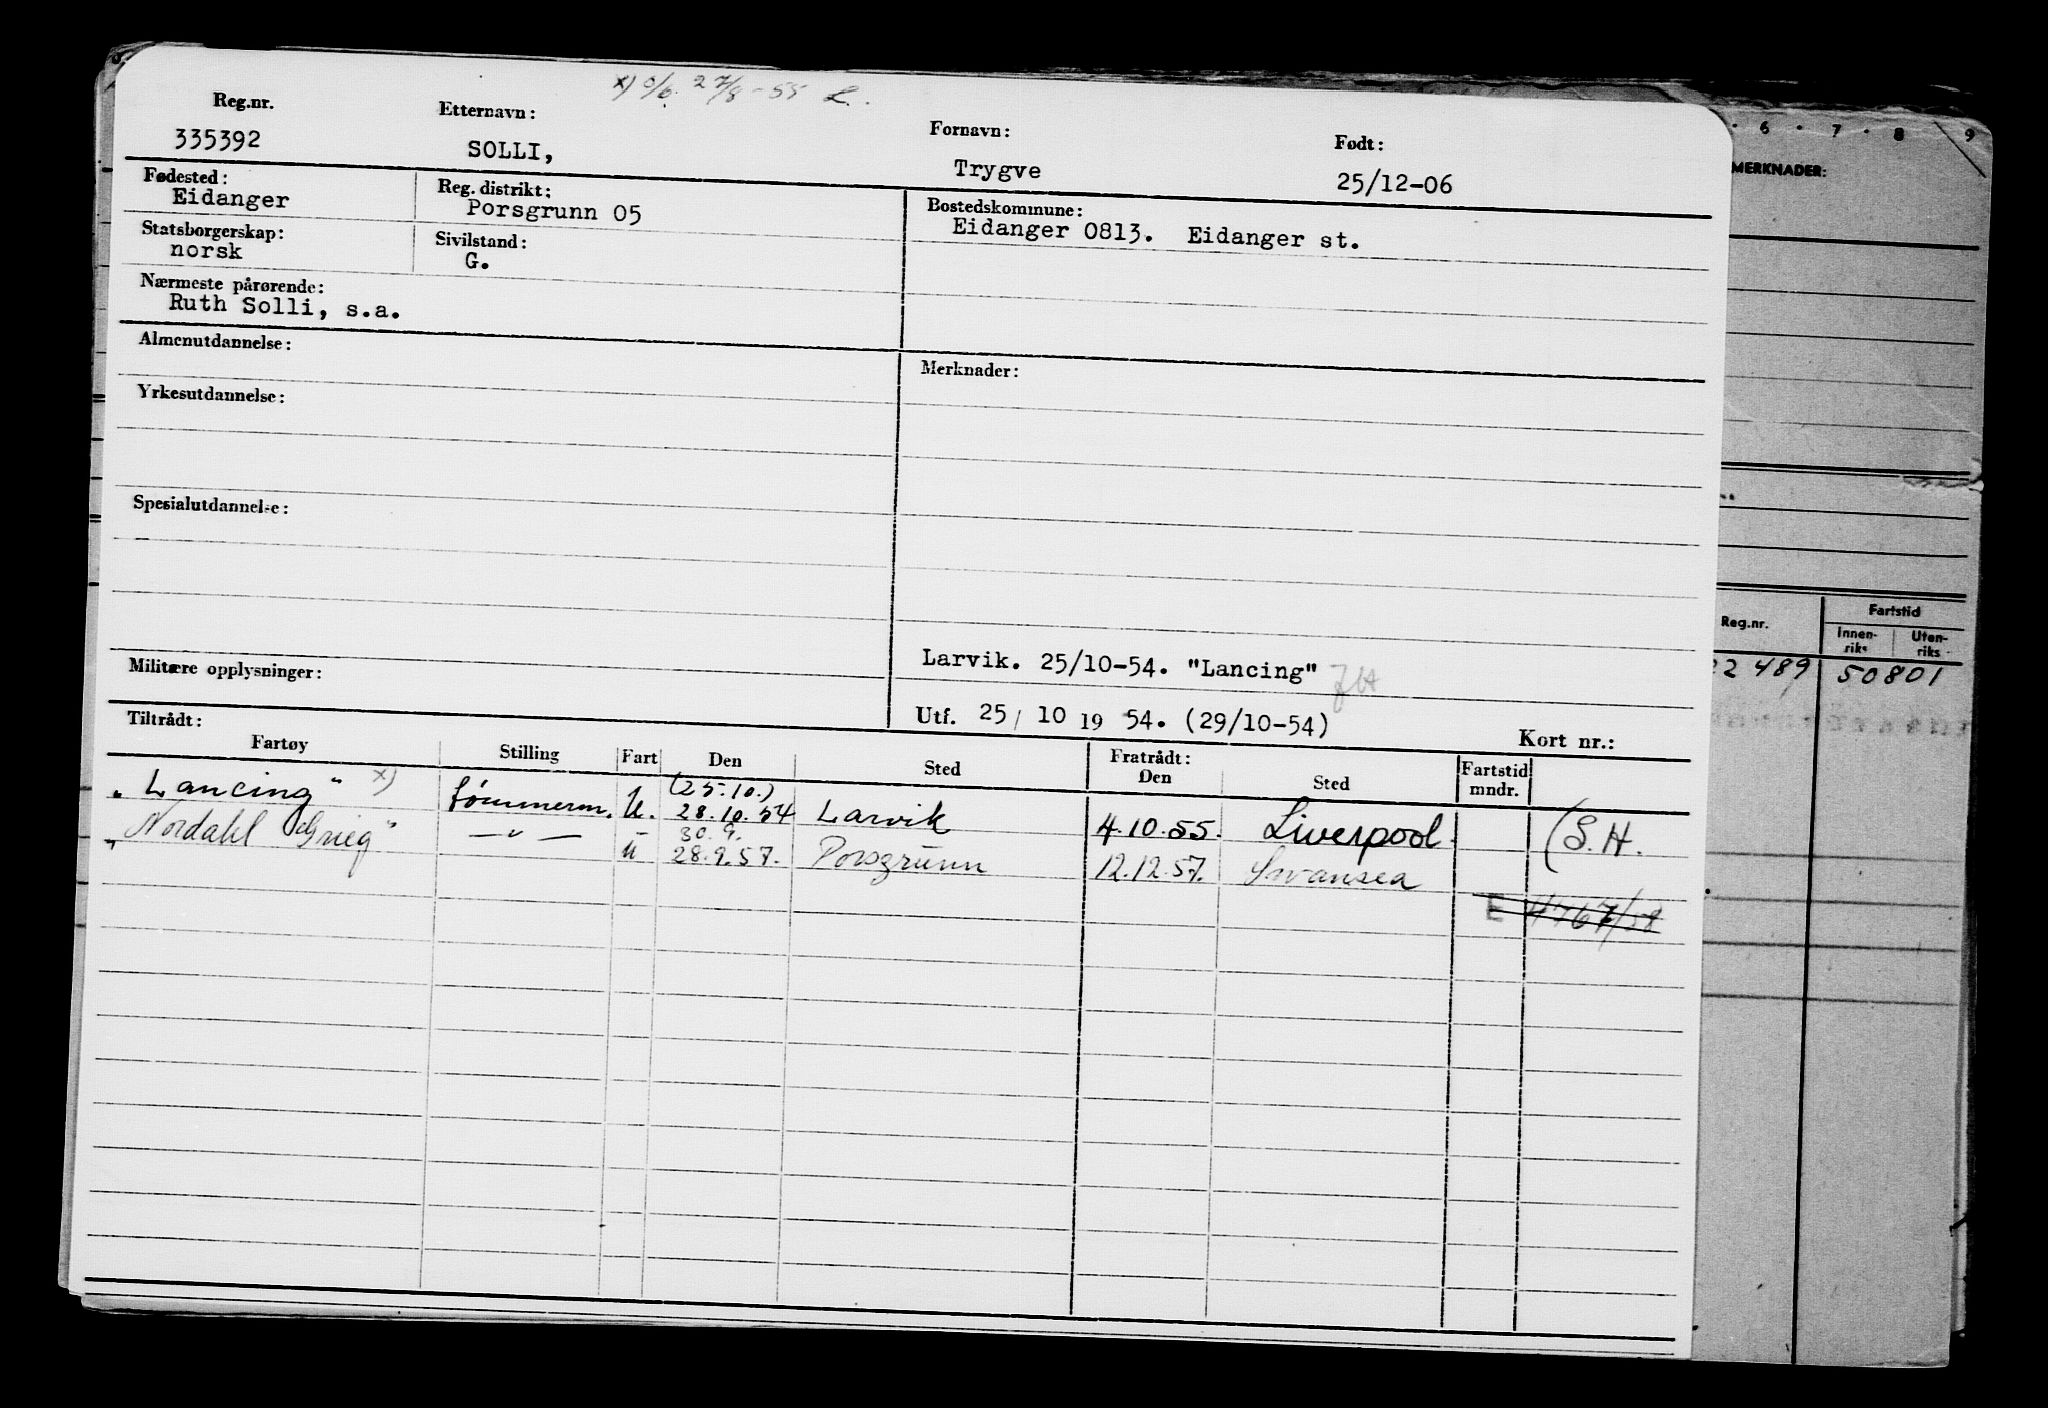 x) 27/8-55 L.
Reg.nr. Etternavn: Fornavn: Født:
335392 SOLLI, Trygve 25/12-06
Fødested: Reg. distrikt: Bostedskommune:
Eidanger Porsgrunn 05 Eidanger 0813. Eidanger st.
Statsborgerskap: Sivilstand:
norsk G.
Nærmeste pårørende:
Ruth Solli, s.a.
Almenutdannelse: Merknader:
Yrkesutdannelse:
Spesialutdannelse:
Larvik. 25/10-54. "Lancing"
Militære opplysninger:
Utf. 25/ 10 19 54. (29/10-54)
Tiltrådt: Kort nr.:
Fartøy Stilling Fart Den Sted Fratrådt: Den Sted Fartstid mndr.
(25.10.)
„Lancing" x) tømmerm. U. 28.10.54 Larvik 4.10.55. Liverpool. (S.H.
30.9.
„Nordahl Grieg" —"— U 28.9.57. Porsgrunn 12.12.57. Swansea
E 4767/58
6 . 7 . 8 9
MERKNADER:
Reg.nr. Fartstid
Innen-riks Uten-riks
22 489 50801